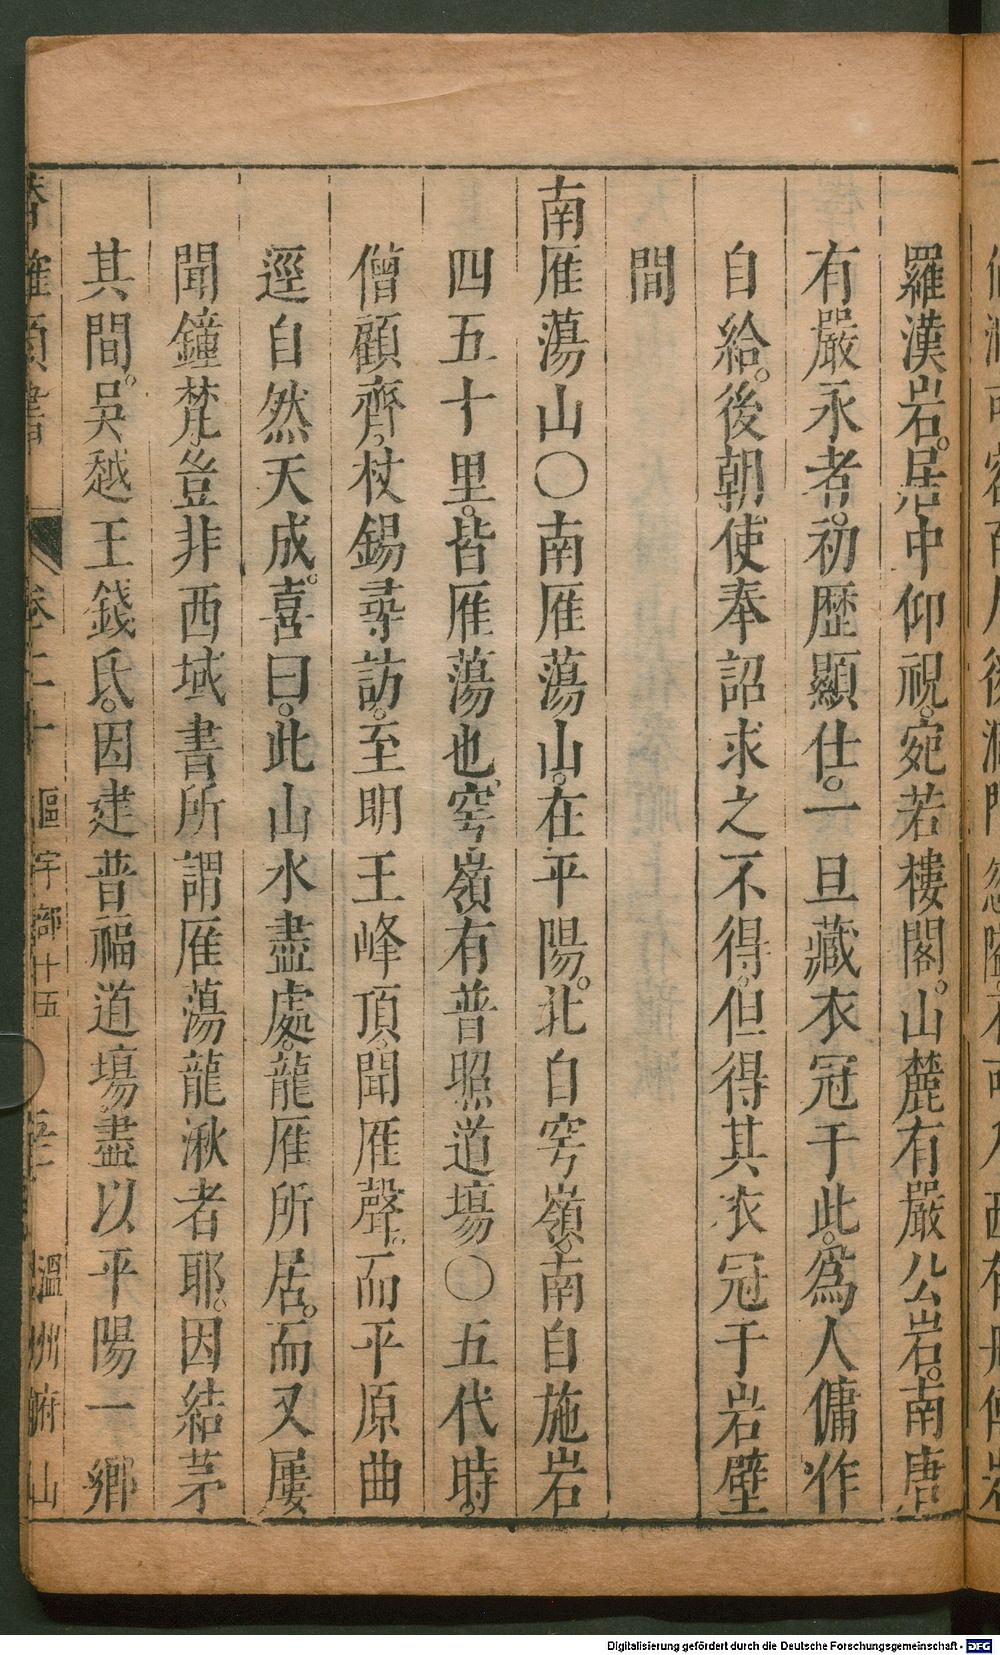 羅漢岩。居中仰視。宛若樓閣。山麓有嚴公岩。南唐
有嚴永者。初歷顯仕。一旦藏衣冠于此。爲人傭作
自給。後朝使奉詔求之不得。但得其衣冠于岩壁
間
南雁蕩山〇南雁蕩山。在平陽。北自穹嶺。南自施岩
四五十里。皆雁蕩也。穹嶺有普照道場〇五代時。
僧顧齊。杖錫尋訪。至明王峰頂。聞雁聲。而平原曲
逕自然天成。喜曰。此山水盡處。龍雁所居。而又屢
聞鐘梵。豈非西域書所謂雁蕩龍湫者耶。因結茅
其間。吳越王錢氏。因建普福道場。盡以平陽一鄉
卷二十 區宇部十五 溫州府山
Digitalisierung gefördert durch die Deutsche Forschungsgemeinschaft - DFG